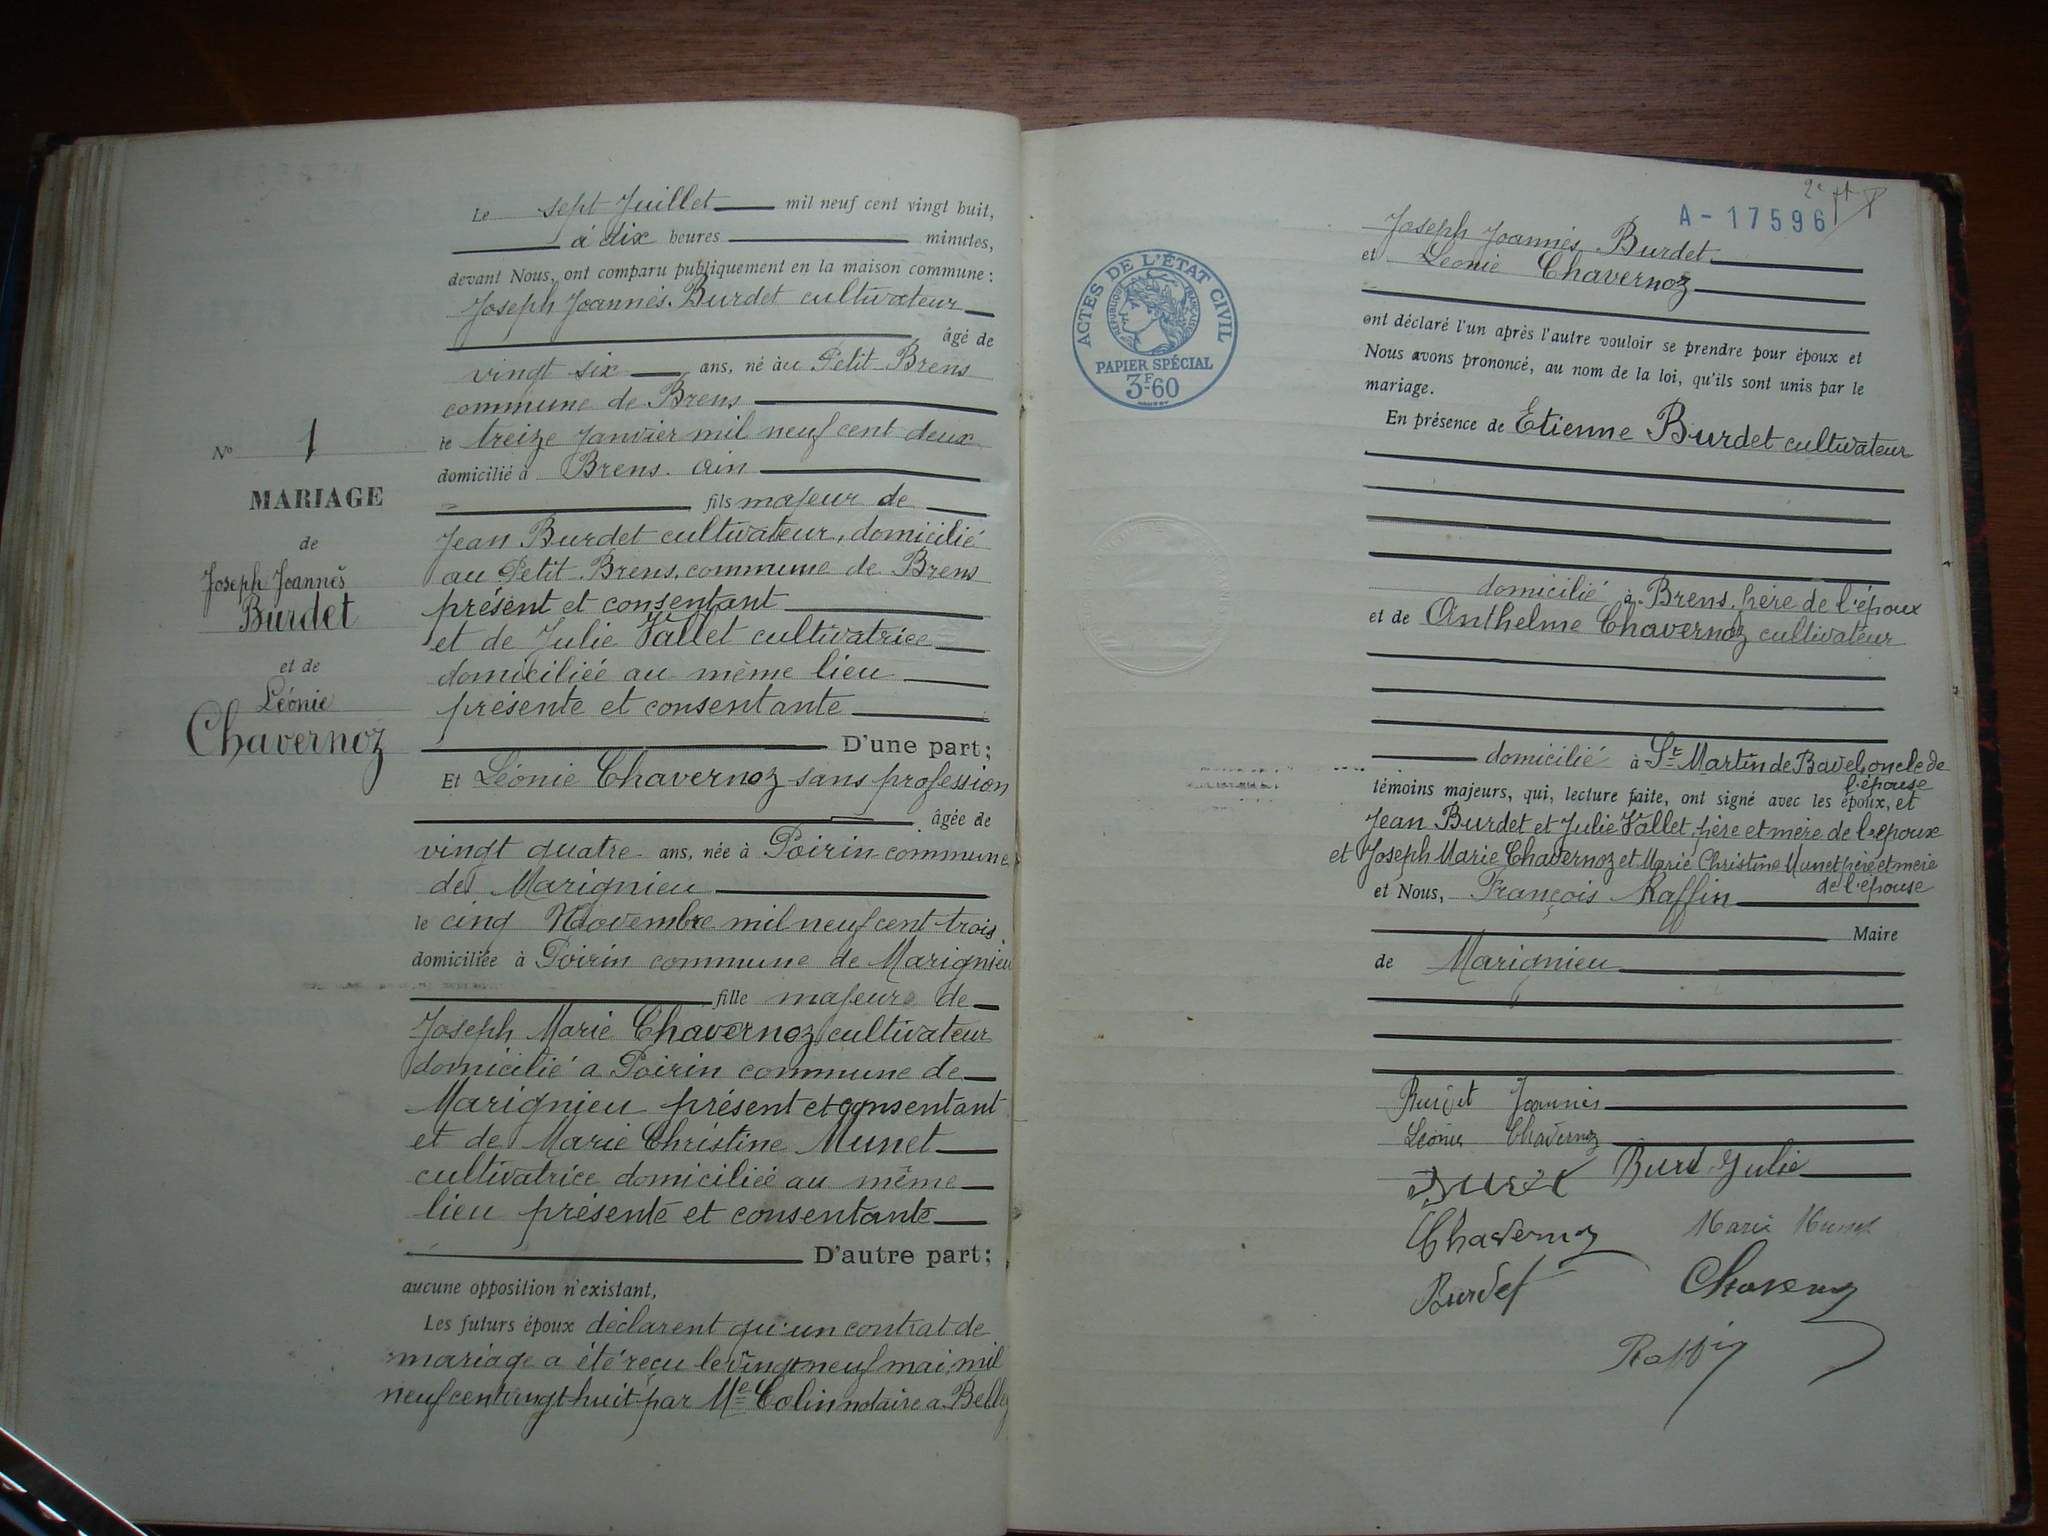 Le sept Juillet mil neuf cent vingt huit,
à dix heures minutes,
devant Nous, ont comparu publiquement en la maison commune :
Joseph Joannès Burdet cultivateur
âgé de
vingt six ans, né au Petit Brens
commune de Brens
le treize Janvier mil neuf cent deux
domicilié à Brens. Ain
fils majeur de
Jean Burdet cultivateur, domicilié
au Petit Brens, commune de Brens
présent et consentant
et de Julie Vallet cultivatrice
domiciliée au même lieu
présente et consentante
D'une part ;
Et Léonie Chavernoz sans profession
âgée de
vingt quatre ans, née à Poirin commune
de Marignieu
le cinq Novembre mil neuf cent trois
domiciliée à Poirin commune de Marignieu
fille majeure de
Joseph Marie Chavernoz cultivateur
domicilié a Poirin commune de
Marignieu présent et consentant
et de Marie Christine Munet
cultivatrice domiciliée au même
lieu présente et consentante
D'autre part ;
aucune opposition n'existant,
Les futurs époux déclarent qu'un contrat de
mariage a été reçu le vingt neuf mai mil
neuf cent vingt huit par Me Colin notaire a Belley
No 1
MARIAGE
de
Joseph Joannès
Burdet
et de
Léonie
Chavernoz
2e
A-17596
ACTES DE L'ÉTAT CIVIL
RÉPUBLIQUE FRANÇAISE
PAPIER SPÉCIAL
3F60
Joseph Joannès Burdet
et Léonie Chavernoz
ont déclaré l'un après l'autre vouloir se prendre pour époux et
Nous avons prononcé, au nom de la loi, qu'ils sont unis par le
mariage.
En présence de Etienne Burdet cultivateur
domicilié à Brens, père de l'époux
et de Anthelme Chavernoz cultivateur
domicilié à St Martin de Bavel oncle de
l'épouse
témoins majeurs, qui, lecture faite, ont signé avec les époux, et
Jean Burdet et Julie Vallet, père et mère de l'epoux
et Joseph Marie Chavernoz et Marie Christine Munet père et mère
de l'épouse
et Nous, François Raffin
Maire
de Marignieu
Burdet Joannès
Léonie Chavernoz
Burdet Julie
Chavernoz Marie Munet
Burdet Chavernoz
Raffin